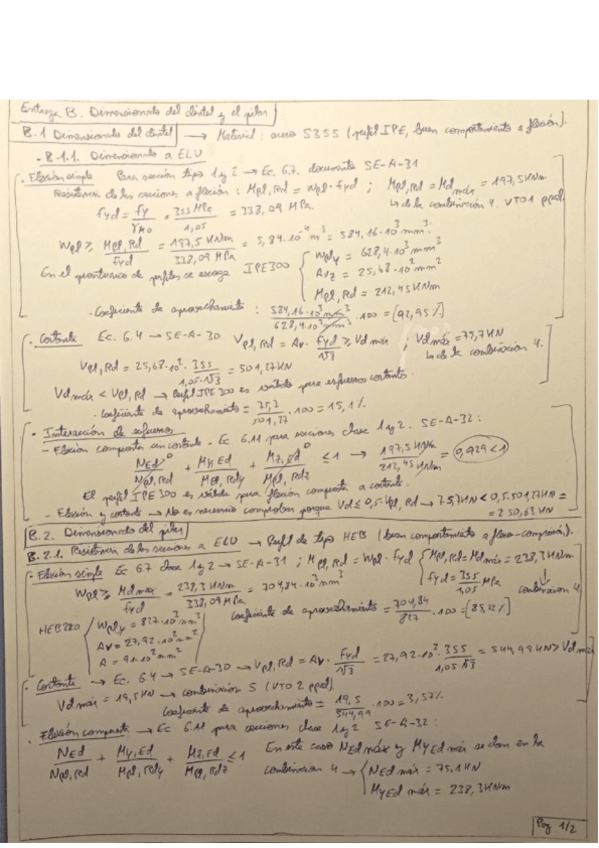 Entrega B. Dimensionado del dintel y el pilar
B.1 Dimensionado del dintel → Material: acero S355 (perfil IPE, buen comportamiento a flexión).
- B.1.1. Dimensionado a ELU
· Flexión simple Para sección tipo 1 y 2 → Ec. 6.7. documento SE-A-31
Resistencia de las secciones a flexión: Mpl,Rd = Wpl · fyd ; Mpl,Rd = Md máx = 197,5 kNm
fyd = fy/γM0 = 355 MPa/1,05 = 338,09 MPa ↳ de la combinación 4. VTO1 ppal.
Wpl ≥ Mpl,Rd/fyd = 197,5 kNm/338,09 MPa = 5,84·10⁻⁴ m³ = 584,16·10³ mm³.
En el prontuario de perfiles se escoge IPE300 { Wply = 628,4·10³ mm³
Avz = 25,68·10² mm²
Mpl,Rd = 212,45 kNm
· Coeficiente de aprovechamiento: 584,16·10³ mm³/628,4·10³ mm³ · 100 = (92,95%)
· Cortante Ec. 6.4 → SE-A-30 Vpl,Rd = Av · fyd/√3 ≥ Vd máx ; Vd máx = 75,7 kN
↳ de la combinación 4.
Vpl,Rd = 25,68·10² · 355/1,05·√3 = 501,27 kN
Vd máx < Vpl,Rd → Perfil IPE 300 es válido para esfuerzos cortantes.
· Coeficiente de aprovechamiento = 75,7/501,27 · 100 = 15,1%.
· Interacción de esfuerzos
- Flexión compuesta sin cortante - Ec 6.11 para secciones clase 1 y 2. SE-A-32:
NEd/Npl,Rd + My,Ed/Mpl,Rdy + Mz,Ed/Mpl,Rdz ≤ 1 → 197,5 kNm/212,45 kNm = 0,929 < 1
El perfil IPE 300 es válido para flexión compuesta a cortante.
- Flexión y cortante → No es necesario comprobar porque Vd ≤ 0,5·Vpl,Rd → 75,7 kN < 0,5·501,27 kN =
= 250,63 kN
B.2. Dimensionado del pilar
B.2.1. Resistencia de las secciones a ELU → Perfil de tipo HEB (buen comportamiento a flexo-compresión).
· Flexión simple Ec 6.7 clase 1 y 2 → SE-A-31 ; Mpl,Rd = Wpl · fyd { Mpl,Rd = Md máx = 238,3 kNm
fyd = 355/1,05 MPa
Wpl ≥ Md máx/fyd = 238,3 kNm/338,09 MPa = 704,84·10³ mm³ ↓ combinación 4
HEB220 { Wply = 827·10³ mm³
Av = 27,92·10² mm²
A = 91·10² mm²
Coeficiente de aprovechamiento = 704,84/827 · 100 = (85,22%)
· Cortante → Ec. 6.4 → SE-A-30 → Vpl,Rd = Av · fyd/√3 = 27,92·10² · 355/1,05·√3 = 544,99 kN > Vd máx
Vd máx = 19,5 kN → combinación 5 (VTO 2 ppal.)
Coeficiente de aprovechamiento = 19,5/544,99 · 100 = 3,57%
· Flexión compuesta → Ec 6.11 para secciones clase 1 y 2 SE-A-32:
NEd/Npl,Rd + My,Ed/Mpl,Rdy + Mz,Ed/Mpl,Rdz ≤ 1 En este caso NEd máx y MyEd máx se dan en la
combinación 4 → { NEd máx = 75,1 kN
MyEd máx = 238,3 kNm
Pag 1/2